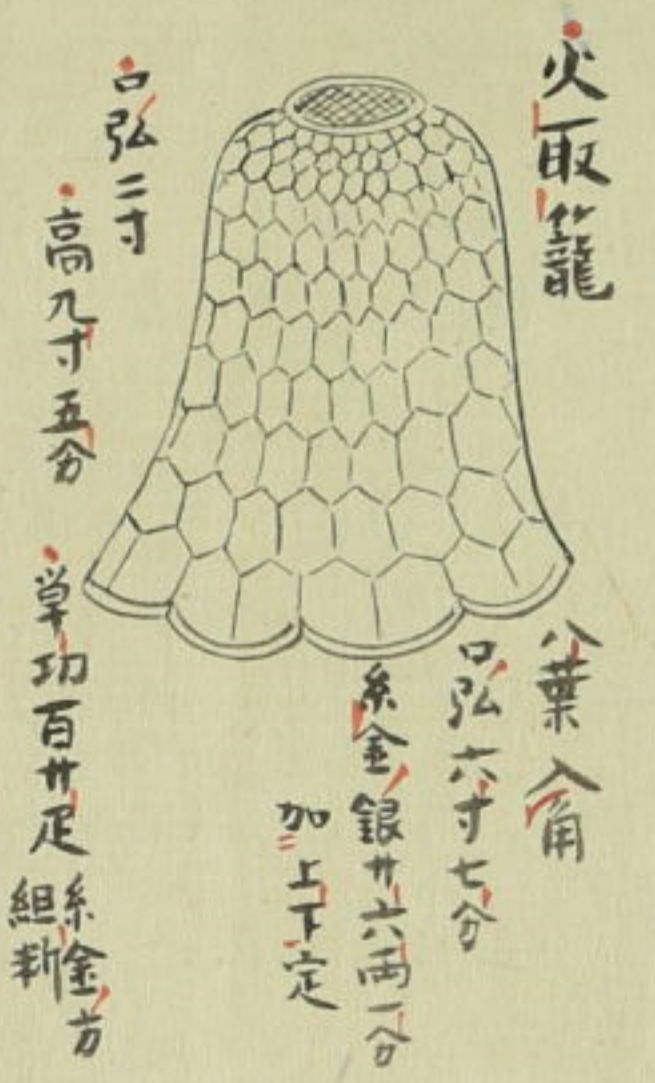 火取籠
八葉入角
口弘六寸七分
糸金銀廿六両一分
加上下定
口弘二寸
高九寸五分
単功百廿疋
糸金方
組料